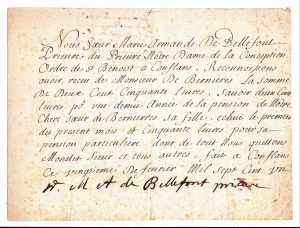 Nous Sœur Marie Armande De Bellefont
Prieure du Prieuré Nôtre Dame de la Conception
Ordre de st Benoist a Conflans, Reconnoissons
avoir receu de Monsieur De Bernieres la somme
De Deux Cent Cinquante livres, Savoir deux Cens
livres pr une demie Année de la pension de Nôtre
Chere sœur de Bernieres sa fille, echuë le premier
du present mois et Cinquante livres pour sa
pension particuliere dont de tout Nous quittons
Mondit Sieur et tous autres, fait a Conflans
Ce vingtieme De fevrier Mil Sept Cent
Sr. M A de Bellefont prieure